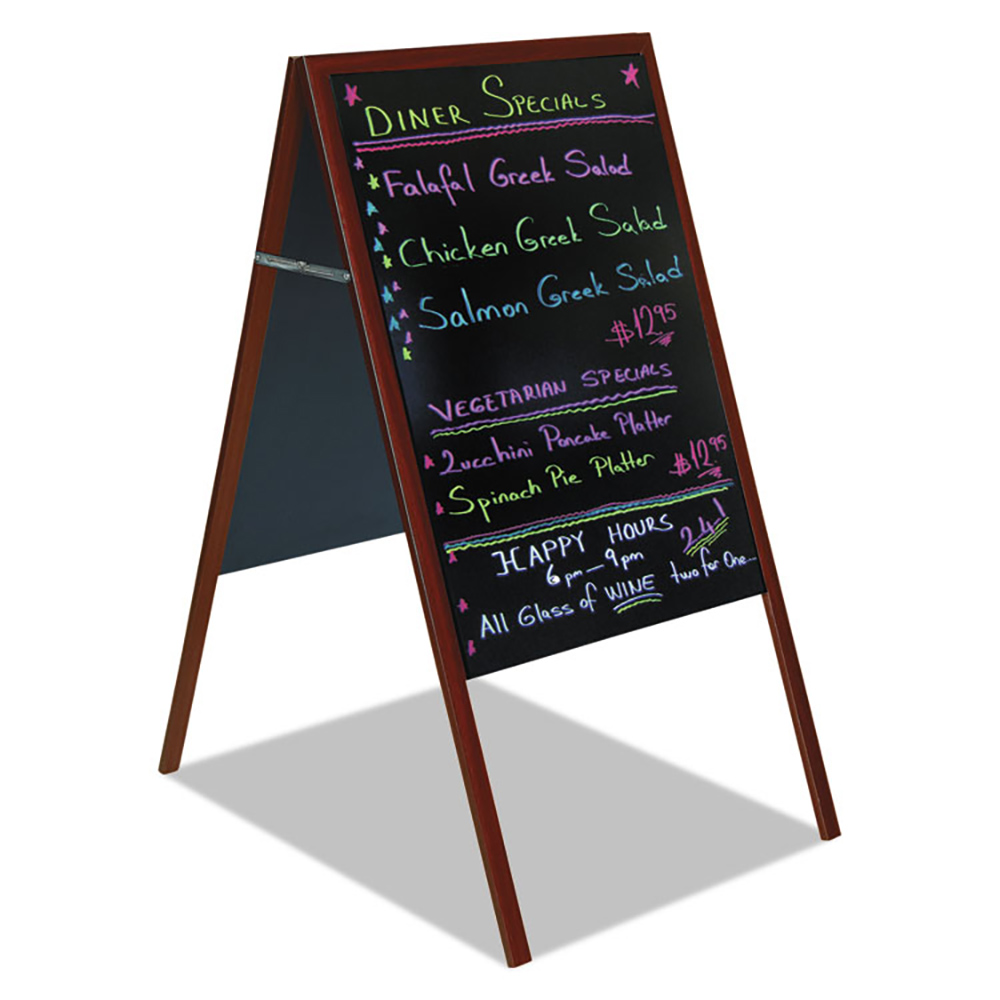 DINER SPECIALS
Falafal Greek Salad
Chicken Greek Salad
Salmon Greek Salad
$12.95
VEGETARIAN SPECIALS
Zucchini Pancake Platter
Spinach Pie Platter $12.95
HAPPY HOURS 2 4 1
6 pm — 9 pm
All Glass of WINE two for One...